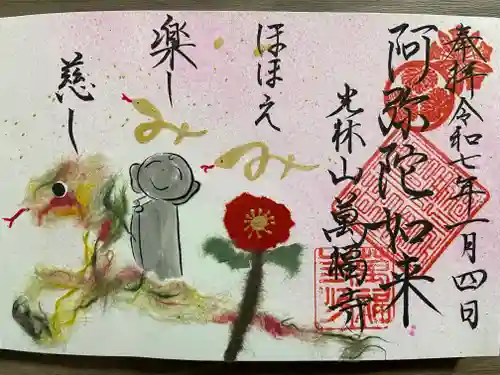 奉拝令和七年一月四日
阿弥陀如来
光林山萬福寺
ほほえみ
楽し
み
慈し